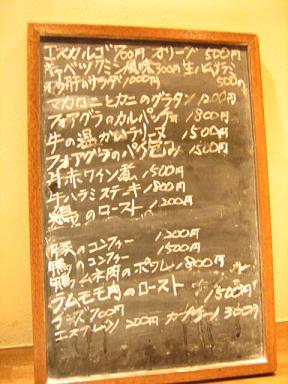 エスカルゴ 700円 オリーブ 500円
キャベツクミン風味 300円 生ハムサラミ
砂肝のサラダ 1000円 500円
マカロニとカニのグラタン 1200円
フォアグラのカルパッチョ 1800円
牛の温かいテリーヌ 1500円
フォアグラのパイ包み 1500円
牛赤ワイン煮 1500円
牛ハラミステキ 1800円
鶏のロースト 1200円
豚のコンフィー 1200円
鴨のコンフィー 1500円
鴨ムネ肉のポワレ 1800円
ラムモモ肉のロースト 1500円
チーズ 700円
エスプレッソ 200円 カプチーノ 300円